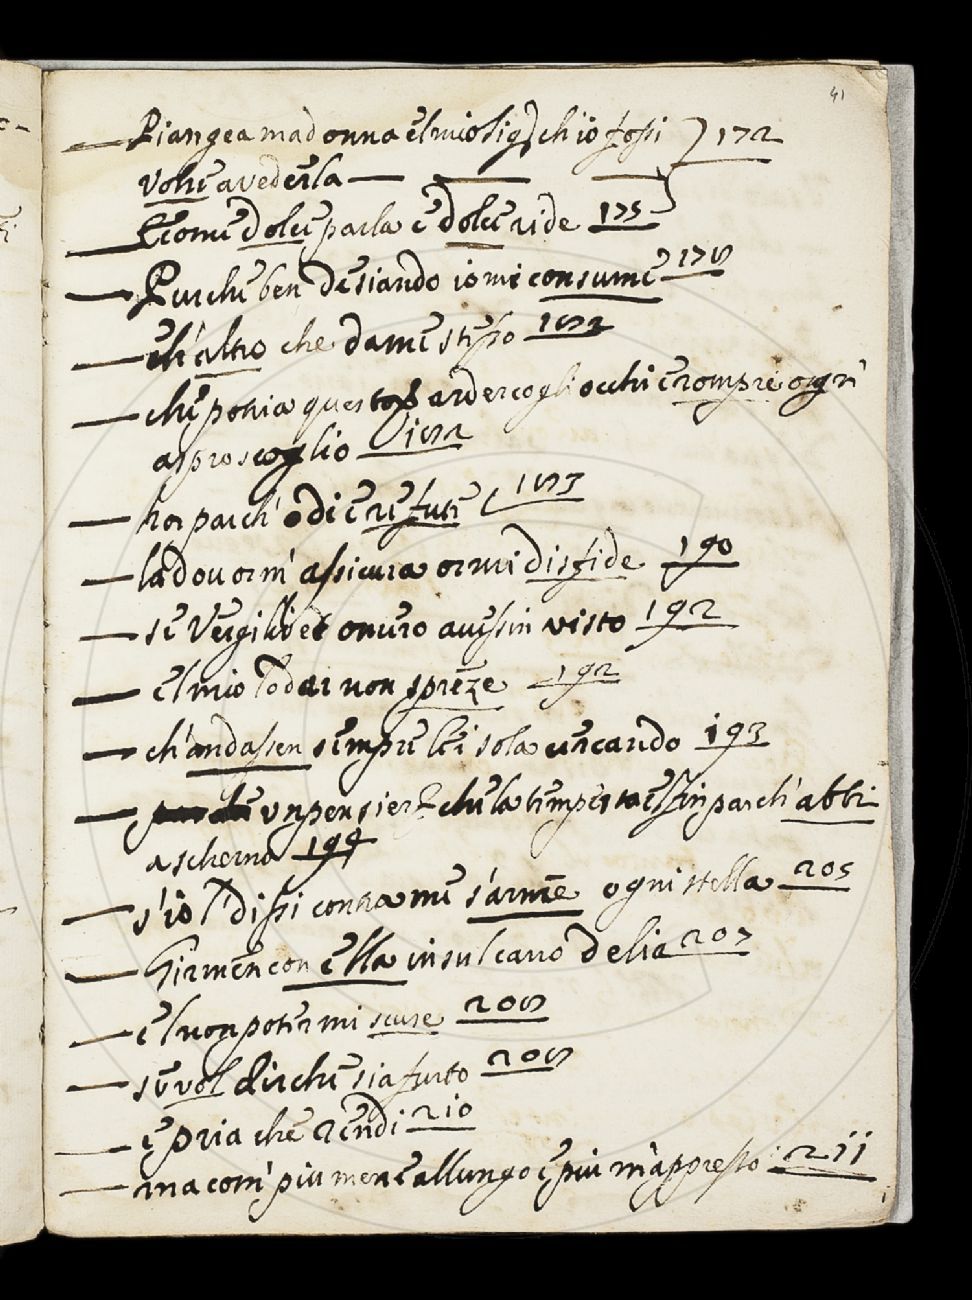 41
Piangea madonna e'l mio sig.r ch'io fossi 172
volse a vederla
E come dolce parla e dolce ride 175
Perche ben desiando io mi consume 178
ch'altro che da me stesso 182
che potria questa arder cogli occhi e rompre ogni
aspro scoglio 182
hor par ch'odi e refute 183
la dov or m'assicura or mi disfide 190
se Vergilio et omero avessin visto 192
e'l mio lodar non spreze 192
ch'andassen sempre lei sola cercando 193
un pensier che la tempesta e'l fin par ch'abbi
a scherno 194
s'io'l dissi contra me s'arme ogni stella 205
Girmen con ella in sul carro de lia 207
e'l non poter mi scuse 208
se vol dir che sia furto 208
e pria che rendi 210
ma com' piu men'allungo e piu m'appresso 211